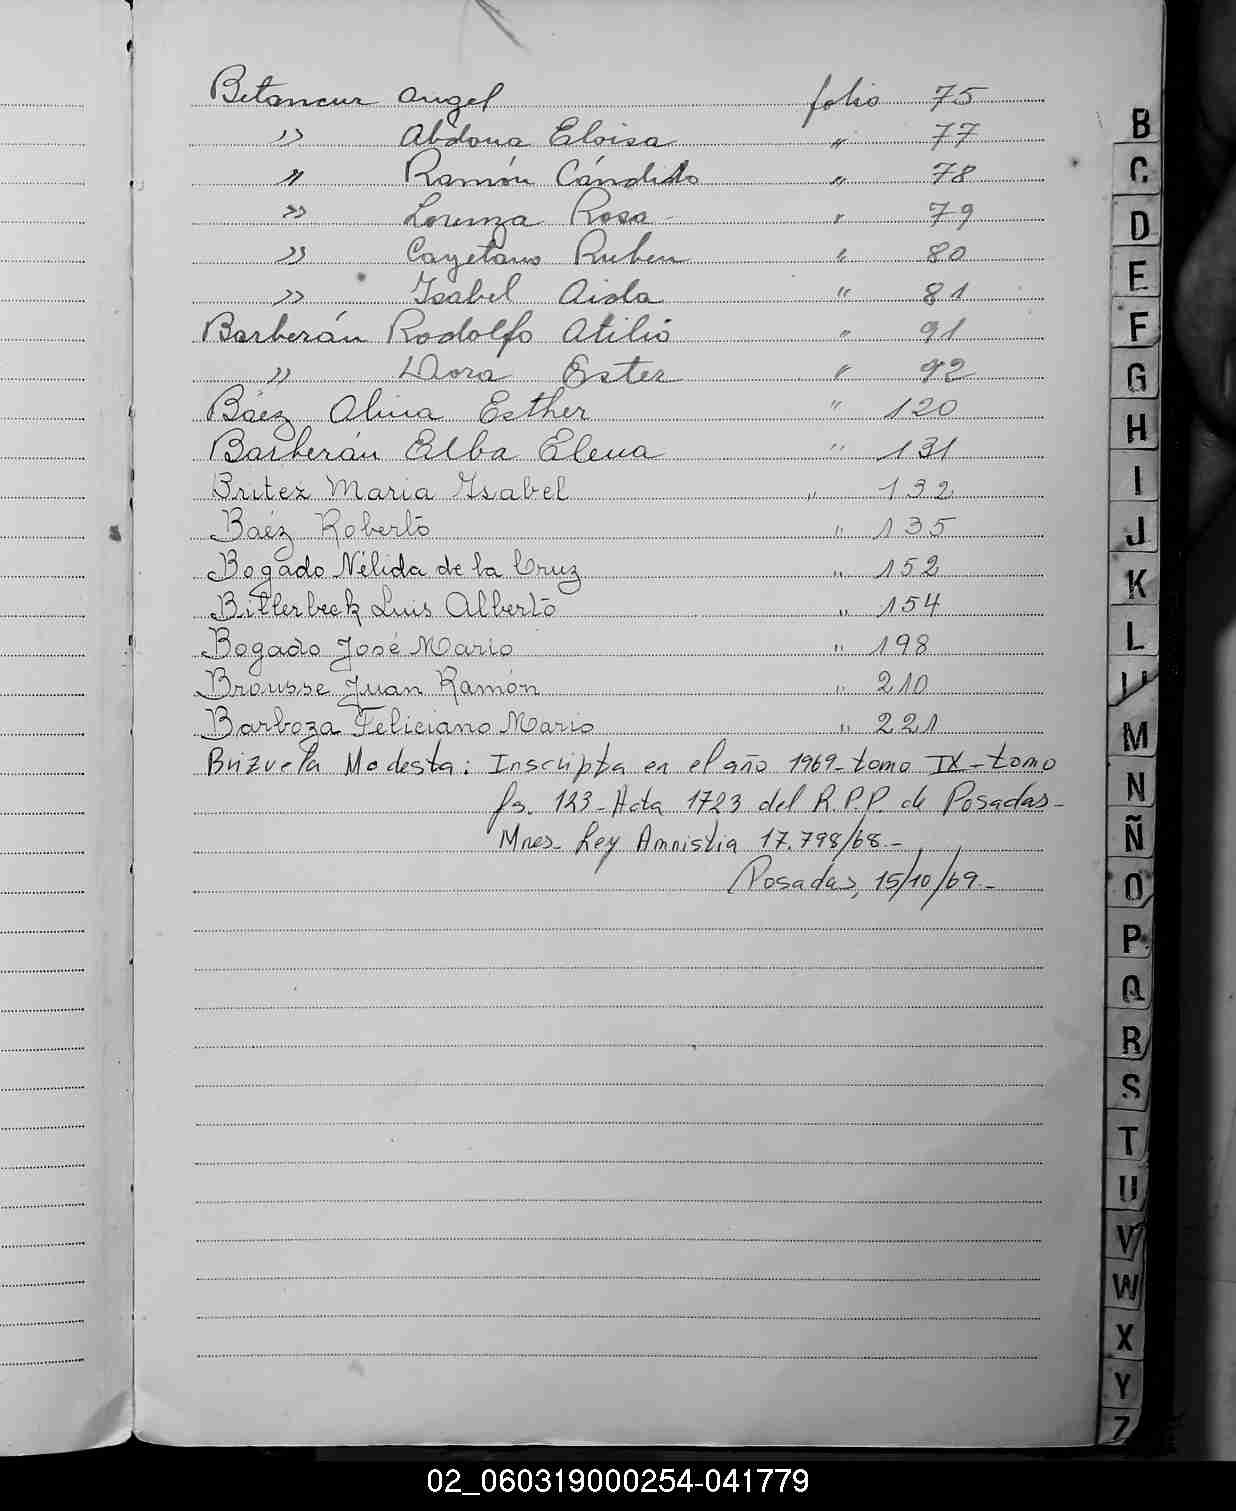 Betancur Angel folio 75
" Abdona Eloisa " 77
" Ramón Cándido " 78
" Lorenza Rosa - " 79
" Cayetano Ruben " 80
" Isabel Aida " 81
Barberán Rodolfo Atilio " 91
" Dora Ester " 92
Báez Alina Esther " 120
Barberán Elba Elena " 131
Britez Maria Ysabel " 132
Baéz Roberto " 135
Bogado Nélida de la Cruz " 152
Bitterbeck Luis Alberto " 154
Bogado José Mario " 198
Brousse Juan Ramón " 210
Barboza Feliciano Mario " 221
Brizuela Modesta: Inscripta en el año 1969 - tomo IX - tomo
fs. 123 - Acta 1723 del R.P.P. de Posadas -
Mnes - Ley Amnistia 17.798/68.-
Posadas, 15/10/69.-
B
C
D
E
F
G
H
I
J
K
L
M
N
Ñ
O
P
Q
R
S
T
U
V
W
X
Y
Z
02_060319000254-041779